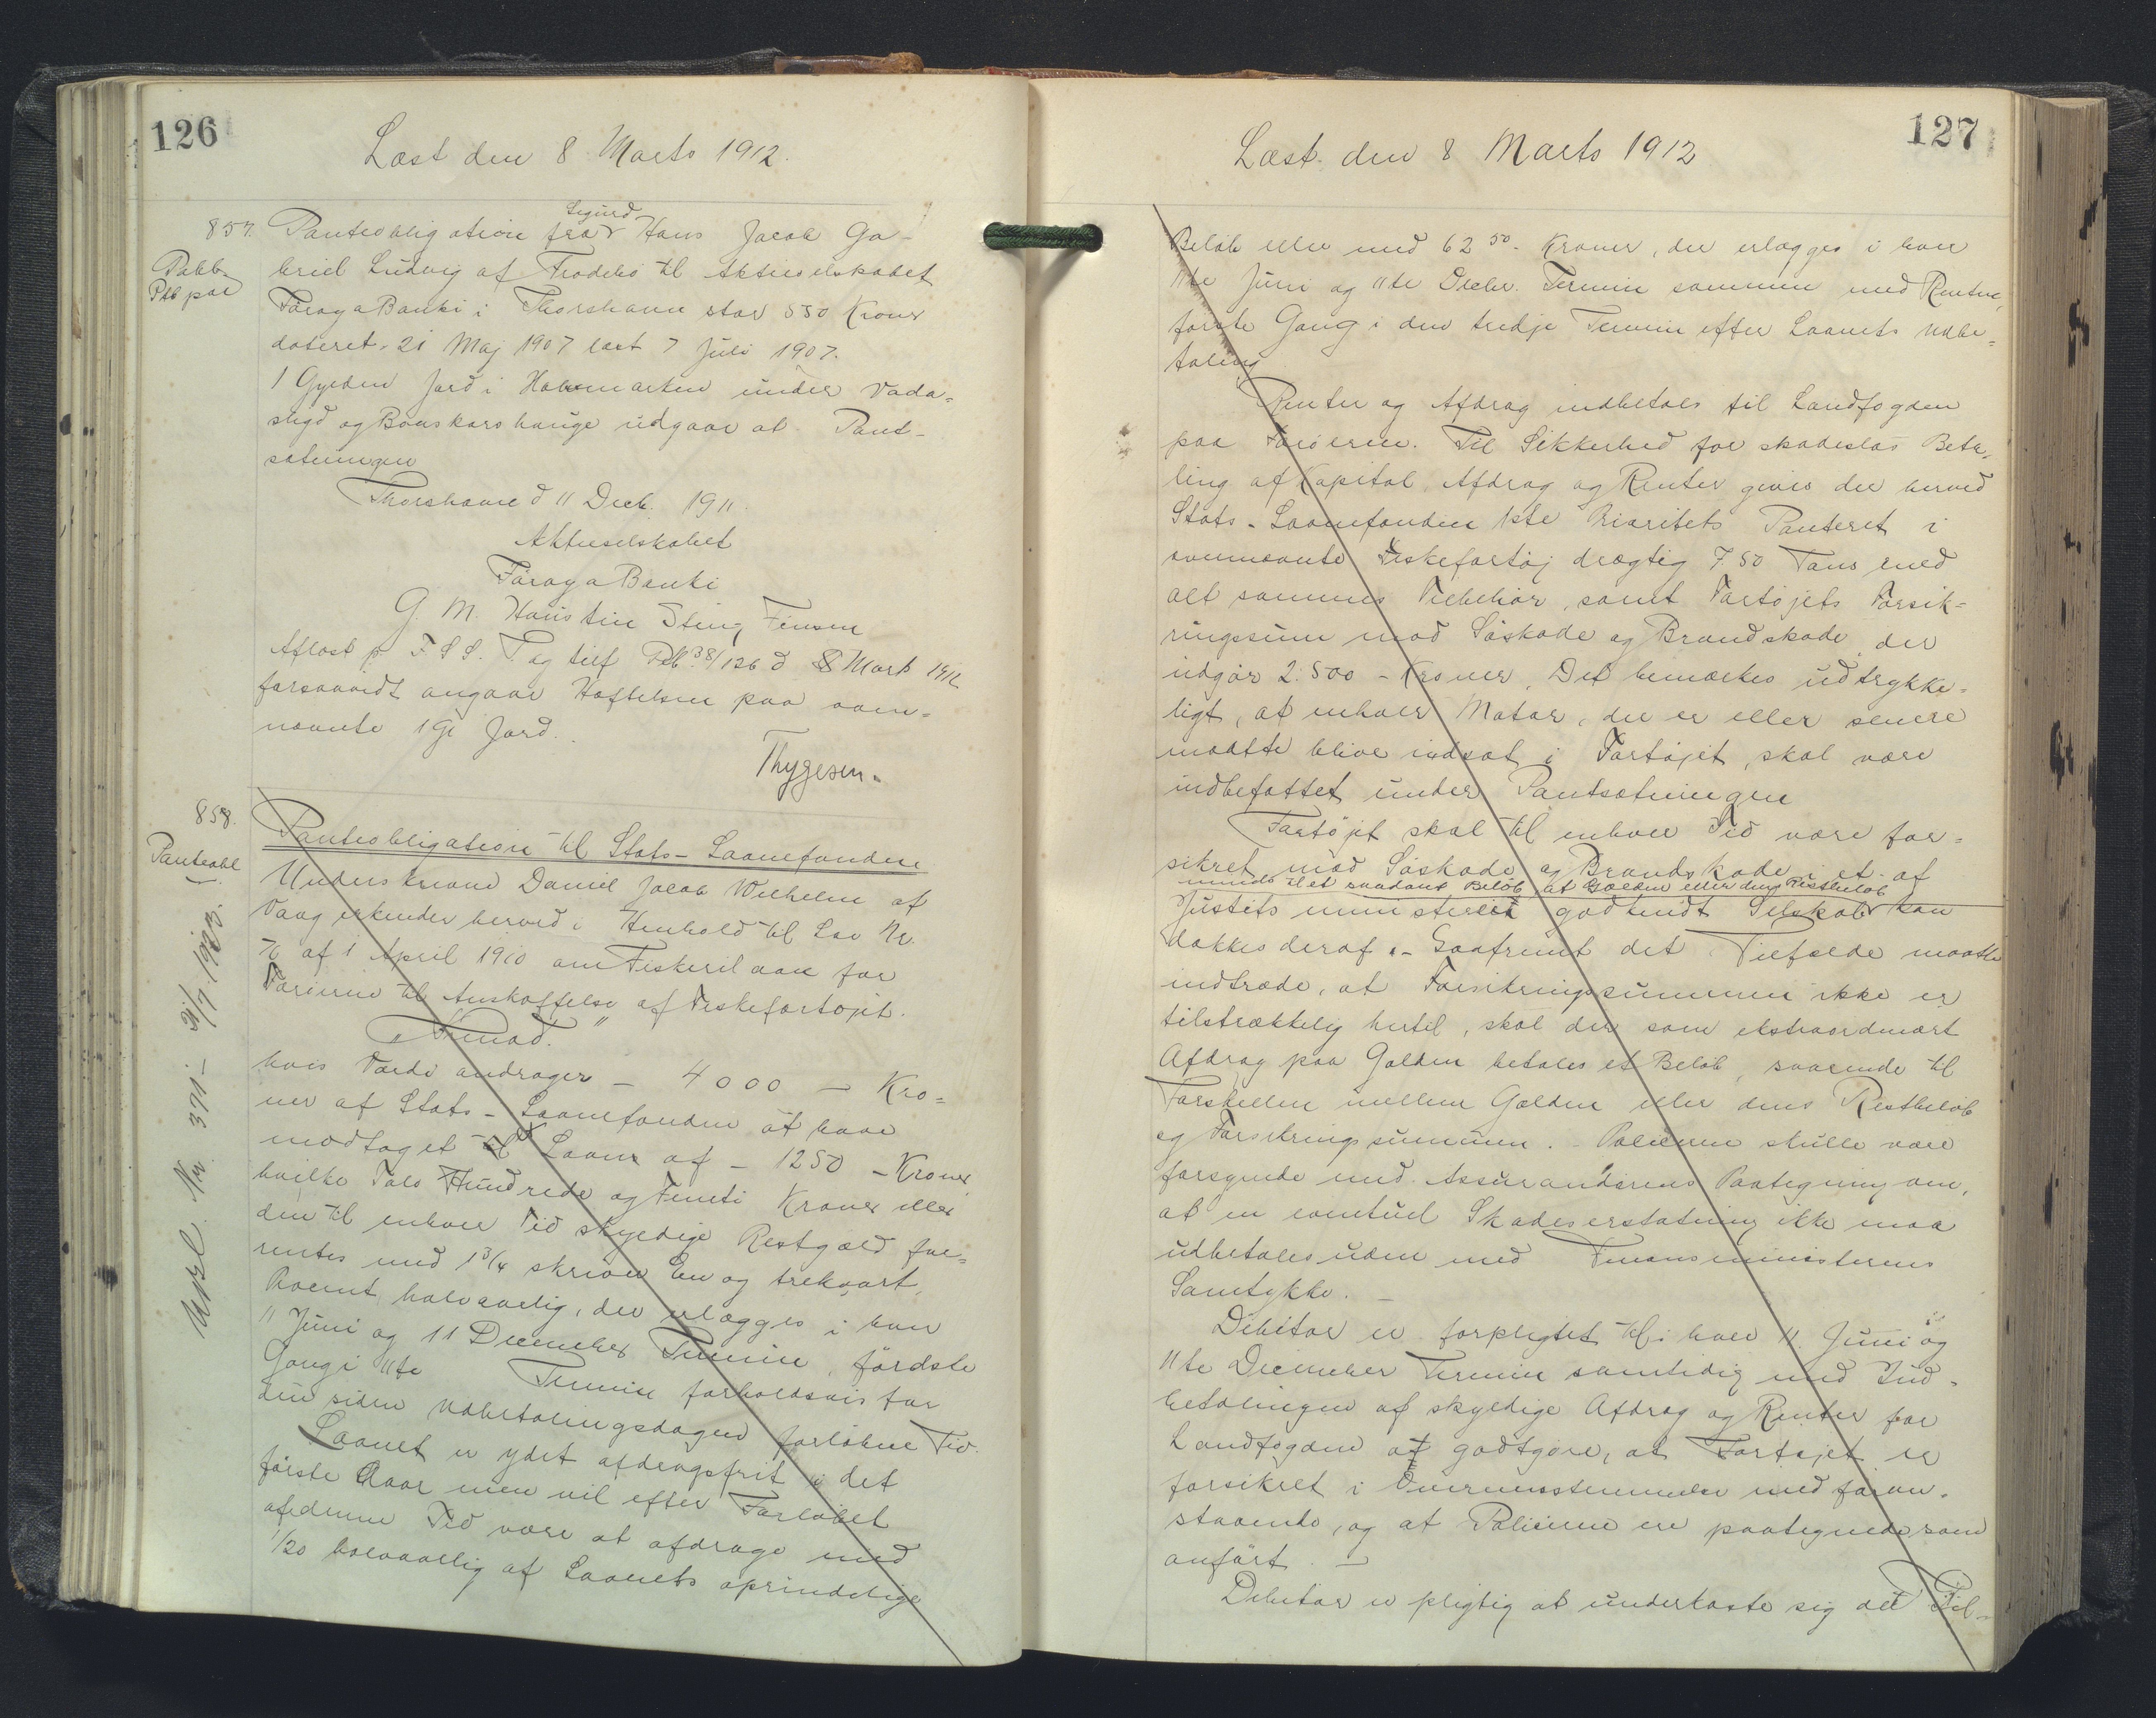 126
Læst den 8 Marts 1912.
857.
Pakb.
Ptb paa
Sigurd
Panteobligation fra Hans Jacob Ga-
briel Ludvig af Frodebø til Aktieselskabet
Føroya Banki i Thorshavn stor 550 Kroner
dateret 21 Maj 1907 læst 7 Juli 1907.
1 Gylden Jord i Hovmarken under Vada-
sligd og Bønskorshauge udgaar af Pant-
sætningen
Thorshavn d 11 Decb. 1911.
Aktieselskabet
Føroya Banki
G. M. Haustin Steing Fensen
Aflæst p. F. S S. T. og tilf Ptb. 38/126 d 8 Marts 1912
forsaavidt angaar Hæftelsen paa oven-
nævnte 1 Gl Jord.
Thygesen.
858.
Panteobl
Udsl. Nr. 371 - 31/7. 1923.
Panteobligation til Stats-Laanefonden
Underskrevne Daniel Jacob Wilhelm af
Vaag erkender herved i Henhold til Lov Nr.
76 af 1 April 1910 om Fiskerilaan for
Færøerne til Anskaffelse af Fiskefartøjet.
"Knud."
hvis Værdi andrager - 4000 - Kro=
ner af Stats-Laanefonden at have
modtaget til Laans af - 1250 - Kroner,
hvilke Tolv Hundrede og Femti Kroner eller
den til enhver Tid skyldige Restgæld for=
rentes med 1 3/4 skriver En og trekvart,
Procent halvaarlig, der erlægges i hver
11 Juni og 11 December Termin, førdste
Gang i 11te Termin forholdsvis for
den siden Udbetalingsdagen forløbne Tid.
Laanet er ydet afdragsfrit i det
første Aar men vil efter Forløbet
af denne Tid være at afdrage med
1/20 halvaarlig af Laanets oprindelige
127
Læst den 8 Marts 1912
Beløb eller med 62 50 - Kroner, der erlægges i hver
11te Juni og 11te Decbr. Termin sammen med Renten,
første Gang i den tredje Termin efter Laanets Udbe=
taling
Renter og Afdrag indbetales til Landfogden
paa Færøerne. Til Sikkerhed for skadesløs Beta-
ling af Kapital, Afdrag og Renter gives der herved
Stats-Laanefonden 1ste Prioritets Panteret i
ovennævnte Fiskefartøj drægtig 7 50 Tons med
alt sammes Tilbehør, samt Fartøjets Forsik=
ringssum mod Søskade og Brandskade der
udgør 2.500 - Kroner. Det bemærkes udtrykke=
ligt, at enhver Motor, der er eller senere
maatte blive indsat i Fartøjet, skal være
indbefattet under Pantsætningen
Fartøjet skal til enhver Tid være for=
sikret mod Søskade og Brandskade i et af
mindst til et saadant Beløb, at Gælden eller dens Restbeløb
Justitsministeriet godkendt Selskab kan
dækkes deraf. - Saafremt det Tilfælde maatte
indtræde, at Forsikringssummen ikke er
tilstrækkelig hertil, skal der som ekstraordinært
Afdrag paa Gælden betales et Beløb, svarende til
Forskellen mellem Gælden eller dens Restbeløb
og Forsikringssummen. - Policerne skulle være
forsynede med Assurandørens Paategning om,
at en eventuel Skadeserstatning ikke maa
udbetales uden med Finansministerens
Samtykke. -
Debitor er forpligtet til i hver 11. Juni og
11te December Termin samtidig med Ind-
betalingen af skyldige Afdrag og Renter for
Landfogden at godtgøre, at Fartøjet er
forsikret i Overensstemmelse med foran-
staaende, og at Policerne ere paategnede som
anført. -
Debitor er pligtig at underkaste sig det Til-